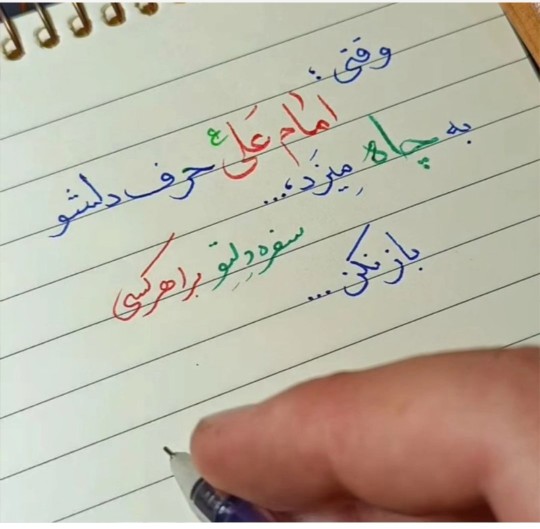 وقتی؛
امام عَلی ع حرف دلشو
به چاه مِیزَد،...
سفره دِلِتو برا هر کسی
باز نکن...